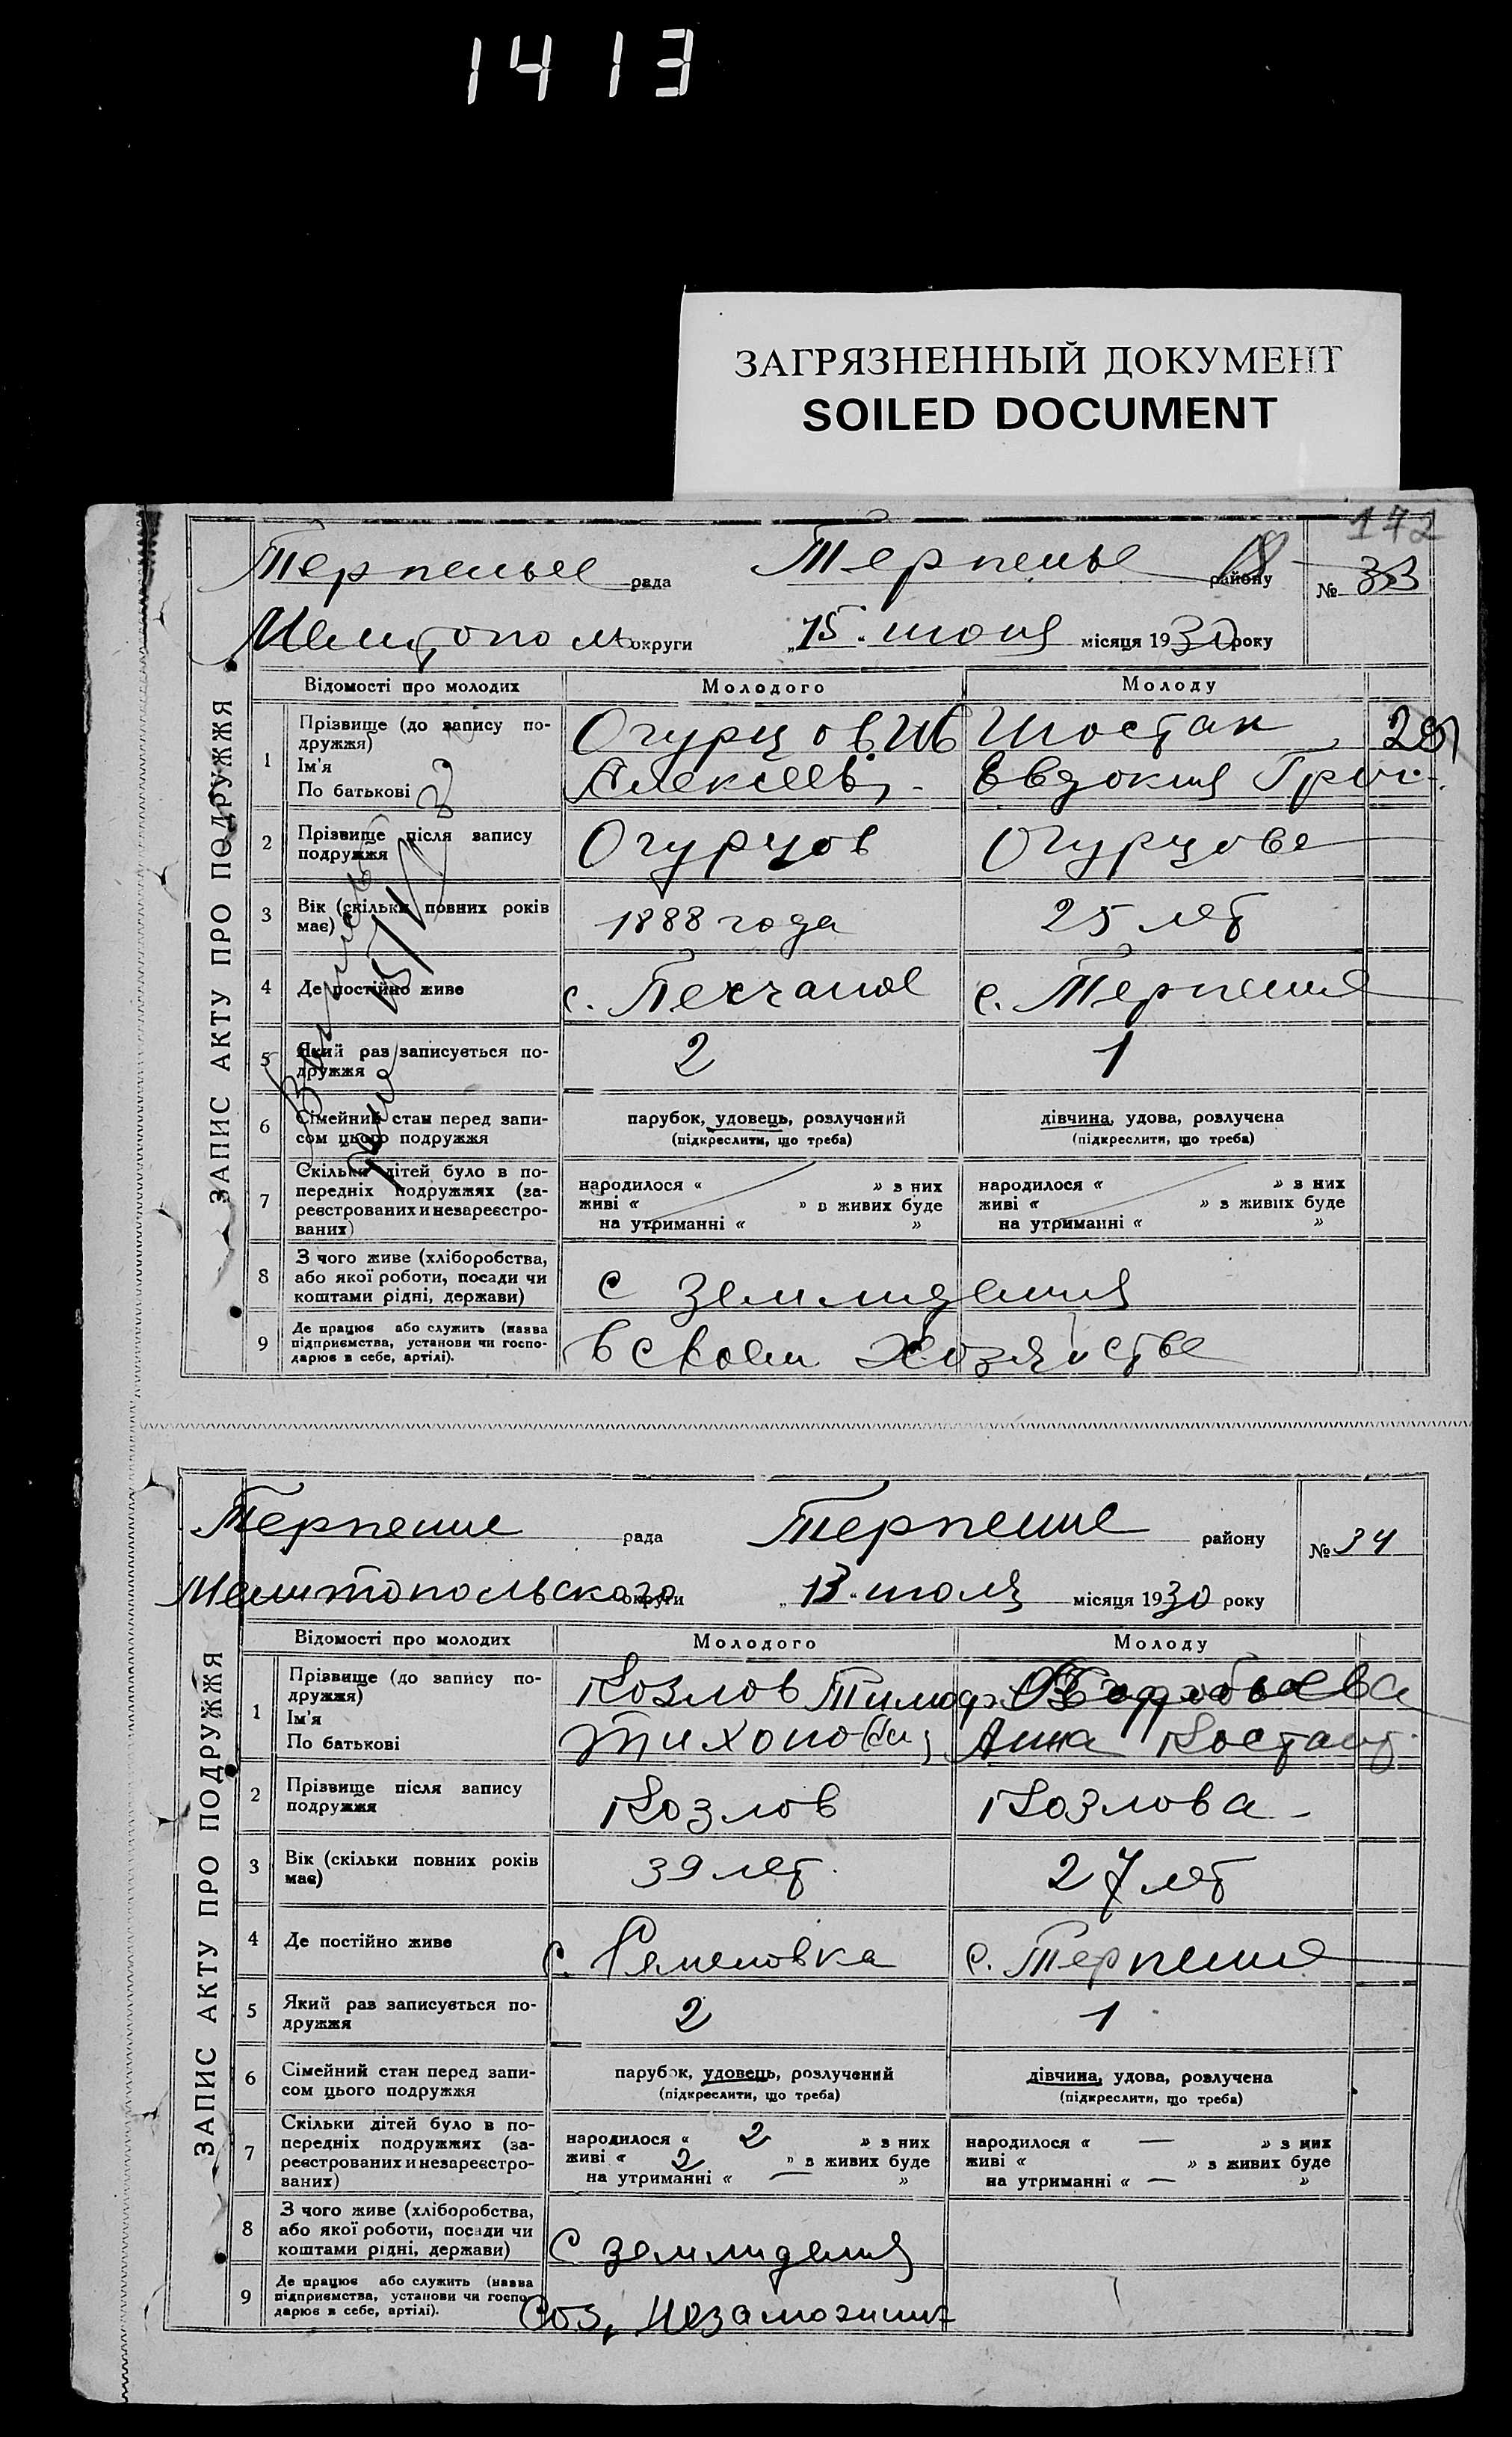 1413
ЗАГРЯЗНЕННЫЙ ДОКУМЕНТ
SOILED DOCUMENT
172
Терпенье рада Терпенье району № 33
Мелитополь округи „15. июня місяця 1930 року
ЗАПИС АКТУ ПРО ПОДРУЖЖЯ
Відомості про молодих Молодого Молоду
1 Прізвище (до запису по-
дружжя)
Ім'я
По батькові
Огурцов Ив Шостак
Алексеев. Евдокия Григ.
2 Прізвище після запису
подружжя
Огурцов Огурцова
3 Вік (скільки повних років
має)
1888 года 25 лет
4 Де постійно живе с. Песчаное с. Терпение
5 Який раз записується по-
дружжя
2 1
6 Сімейний стан перед запи-
сом цього подружжя
парубок, удовець, розлучений дівчина, удова, розлучена
(підкреслити, що треба) (підкреслити, що треба)
7 Скільки дітей було в по-
передніх подружжях (за-
реєстрованих и незареєстро-
ваних)
народилося « » з них народилося « » з них
живі « » в живих буде живі « » в живих буде
на утриманні « » на утриманні « »
8 З чого живе (хліборобства,
або якої роботи, посади чи
коштами рідні, держави)
с землиделия
9 Де працює або служить (назва
підприємства, установи чи госпо-
дарює в себе, артілі).
в своем хозяйстве
Терпение рада Терпение району № 34
Мелитопольского округи „13“ июля місяця 1930 року
ЗАПИС АКТУ ПРО ПОДРУЖЖЯ
Відомості про молодих Молодого Молоду
1 Прізвище (до запису по-
дружжя)
Ім'я
По батькові
Козлов Тимоф.
Тихонович Анна Костант.
2 Прізвище після запису
подружжя
Козлов Козлова
3 Вік (скільки повних років
має)
39 лет. 27 лет
4 Де постійно живе с. Семеновка с. Терпение
5 Який раз записується по-
дружжя
2 1
6 Сімейний стан перед запи-
сом цього подружжя
парубок, удовець, розлучений дівчина, удова, розлучена
(підкреслити, що треба) (підкреслити, що треба)
7 Скільки дітей було в по-
передніх подружжях (за-
реєстрованих и незареєстро-
ваних)
народилося « 2 » з них народилося « — » з них
живі « 2 » в живих буде живі « » в живих буде
на утриманні « — » на утриманні « — »
8 З чого живе (хліборобства,
або якої роботи, посади чи
коштами рідні, держави)
с землиделия
9 Де працює або служить (назва
підприємства, установи чи госпо-
дарює в себе, артілі).
Соз, Незаможник